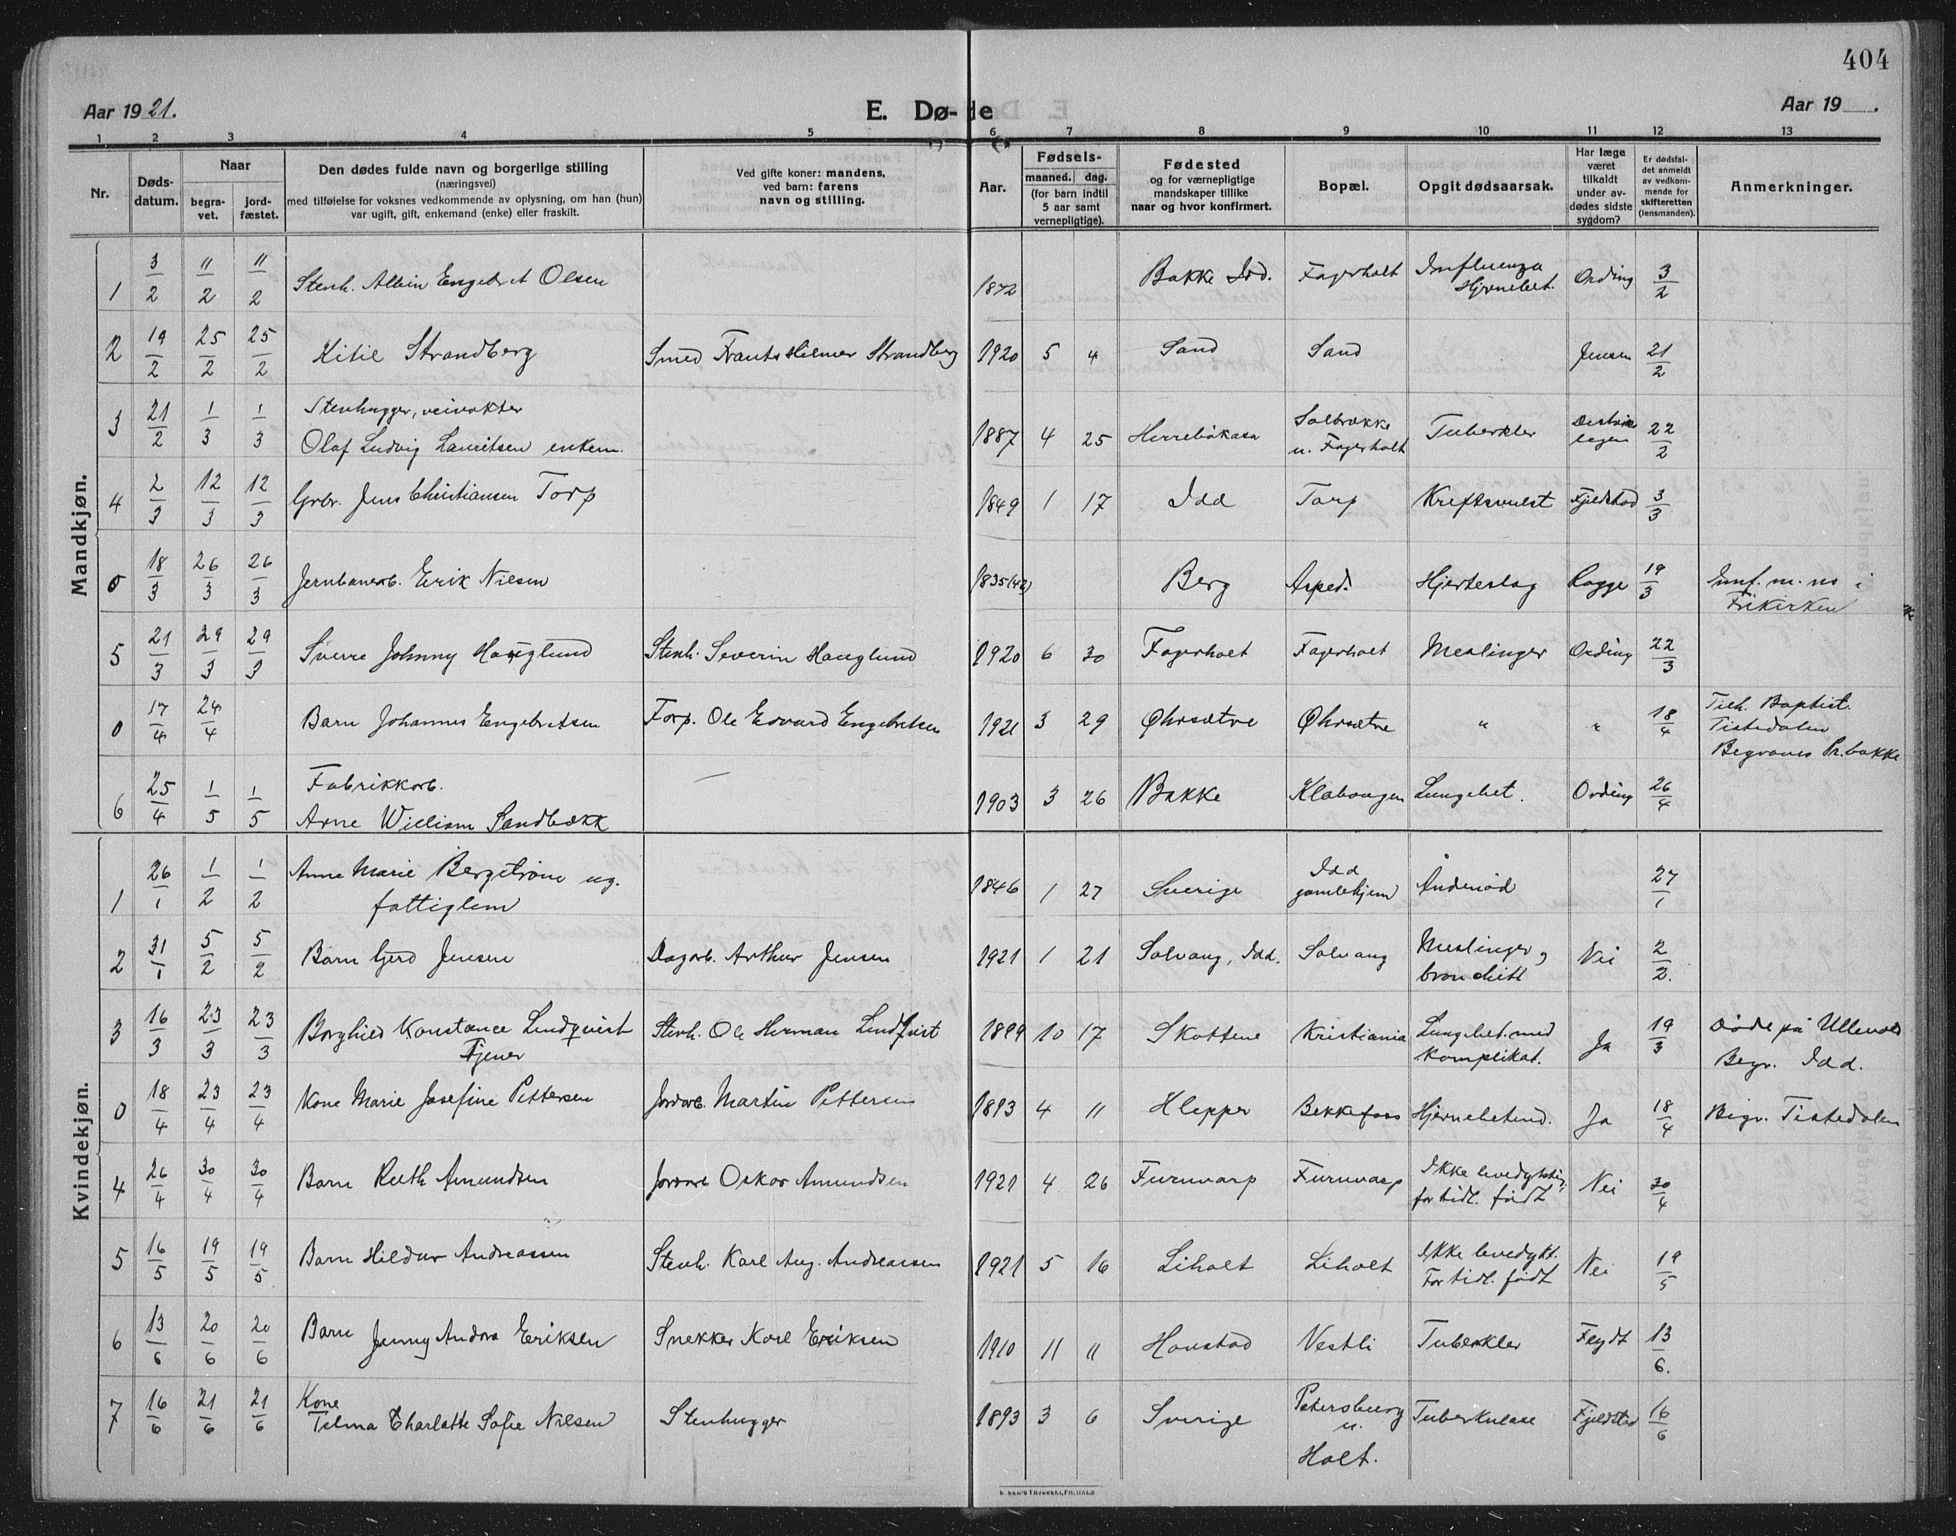 404
Aar 1921.
E. Dø-de
Aar 19 .
1 2 3 4 5 6 7 8 9 10 11 12 13
Nr.
Døds-
datum.
Naar
begra-
vet.
jord-
fæstet.
Den dødes fulde navn og borgerlige stilling
(næringsvei)
med tilføielse for voksnes vedkommende av oplysning, om han (hun)
var ugift, gift, enkemand (enke) eller fraskilt.
Ved gifte koner: mandens,
ved barn: farens
navn og stilling.
Aar.
Fødsels-
maaned. dag.
(for barn indtil
5 aar samt
vernepligtige).
Fødested
og for værnepligtige
mandskaper tillike
naar og hvor konfirmert.
Bopæl.
Opgit dødsaarsak.
Har læge
været
tilkaldt
under av-
dødes sidste
sygdom?
Er dødsfal-
det anmeldt
av vedkom-
mende for
skifteretten
(lensmanden).
Anmerkninger.
Mandkjøn.
1 3/2 11/2 11/2 Stenh. Albin Engebret Olsen 1872 Bakke Idd. Fagerholt Influenza Hjernebet. Ording 3/2
2 19/2 25/2 25/2 Kitil Strandberg Smed Frants Hilmer Strandberg 1920 5 4 Sand Sand Jensen 21/2
3 21/2 1/3 1/3 Stenhugger, veivokter
Olaf Ludvig Lauritsen enkem. 1887 4 25 Herrebøkasa Solbrække u. Fagerholt Tuberkler 22/2
4 2/3 12/3 12/3 Grbr. Jens Christiansen Torp 1849 1 17 Idd Torp Kreftsvulst Fjeldstad 3/3
0 18/3 26/3 26/3 Jernbanearb. Erik Nilsen 1835(42) Berg Asped. Hjerteslag Rogge 19/3 i
Frikirken
5 21/3 29/3 29/3 Sverre Johnny Hauglund Stenh. Severin Hauglund 1920 6 30 Fagerholt Fagerholt Meslinger Ording 22/3
0 17/4 24/4 Barn Johannes Engebretsen Forp. Ole Edvard Engebretsen 1921 3 29 Øhrsætre Øhrsætre " " 18/4 Tilh. Baptist.
Tistedalen
Begraves Pr.bakke
6 25/4 1/5 1/5 Fabrikkarb.
Arne William Sandbækk — 1903 3 26 Bakke Lungebet. Ording 26/4
Kvindekjøn.
1 26/1 1/2 1/2 Anna Marie Bergstrøm ug.
fattiglem 1846 1 27 Sverige Idd gamlehjem Åndenød 27/1
2 31/1 5/2 5/2 Barn Gerd Jensen Dagarb. Arthur Jensen 1921 1 21 Solvang, Idd. Solvang Meslinger, bronchitt Nei 2/2.
3 16/3 23/3 23/3 Borghild Konstance Lindqvist
Tjener Stenh. Ole Herman Lindqvist 1899 10 17 Skottene Kristiania Lungebet. med komplikat. Ja 19/3 Døde på Ullevold
Begr. Idd.
0 18/4 23/4 23/4 Kone Marie Josefine Pettersen Jordarb. Martin Pettersen 1893 4 11 Klepper Bekkefoss Hjernebetend. Ja 18/4 Begr. Tistedalen
4 26/4 30/4 30/4 Barn Ruth Amundsen Jordarb Oskar Amundsen 1921 4 26 Furuvarp Furuvarp Ikke levedygtig, for tidl. født Nei 30/4
5 16/5 19/5 19/5 Barn Hildur Andreassen Stenh. Karl Aug. Andreassen 1921 5 16 Liholt Liholt Ikke levedykt. For tidl. født Nei 19/5
6 13/6 20/6 20/6 Barn Jenny Andora Eriksen Snekker Karl Eriksen 1910 11 11 Haustad Vestli Tuberkler Feydt 13/6.
7 16/6 21/6 21/6 Kone
Telma Charlotte Sofie Nilsen Stenhugger 1893 3 6 Sverige Petersburg u. Holt. Tuberkulose Fjeldstad 16/6